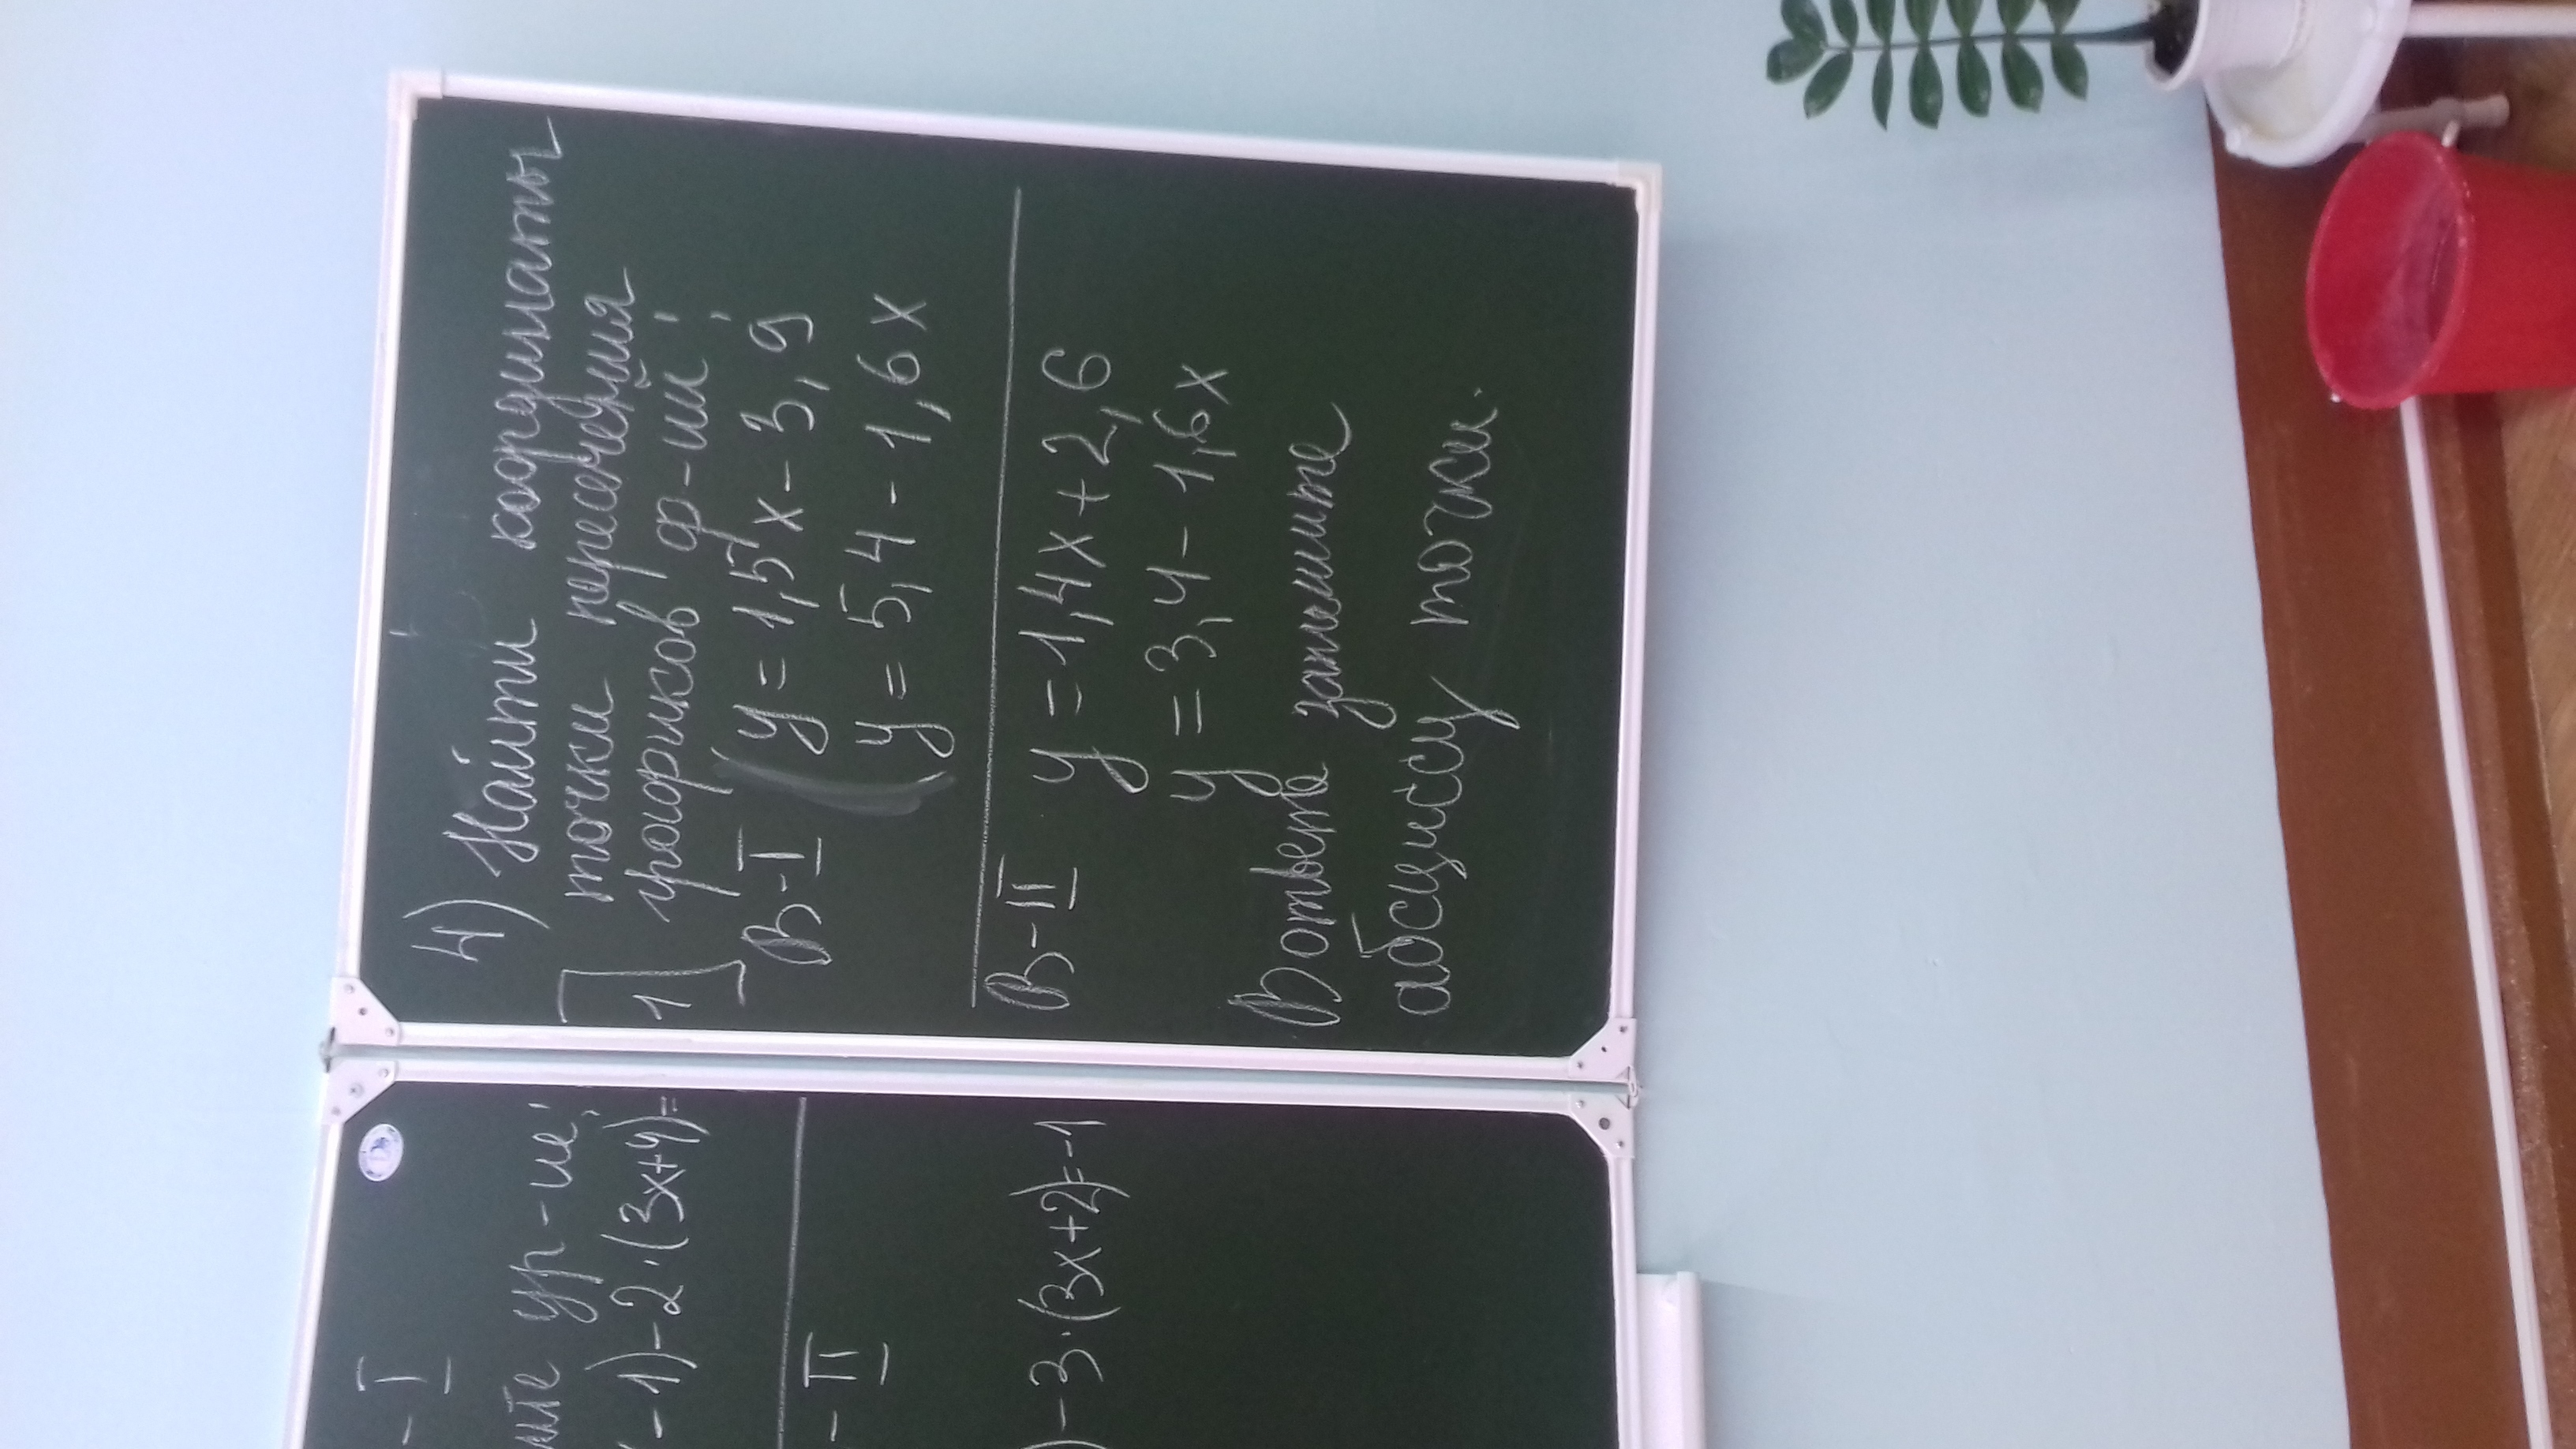 - I
ите ур-ие:
- 1) - 2·(3x+4)=
1
- II
) - 3·(3x+2)=-1
4) Найти координаты
точки пересечения
графиков ф-ий:
В-I y = 1,5x - 3,9
y = 5,4 - 1,6x
В-II y = 1,4x + 2,6
y = 3,4 - 1,6x
В ответе запишите
абсциссу точки.